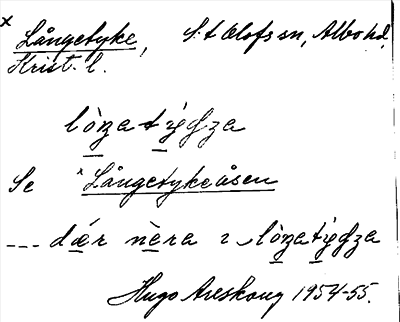 x
Långetyke, S:t Olofs sn, Albo hd,
Krist. l.
lòŋatýdʒa
Se Långetykeåsen
--- dær nèra i lòŋatýdʒa
Hugo Areskoug 1954-55.